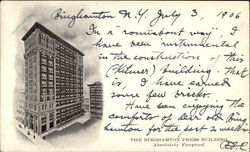 Binghamton N.Y. July 3, 1906
In a "roundabout way" I
have been instrumental
in the construction of this
(Kilmer) building - that
is, I have carried
some few bricks.
Have been enjoying the
comforts of dear old Bing-
hamton for the past 2 weeks.
THE BINGHAMTON PRESS BUILDING
Absolutely Fireproof